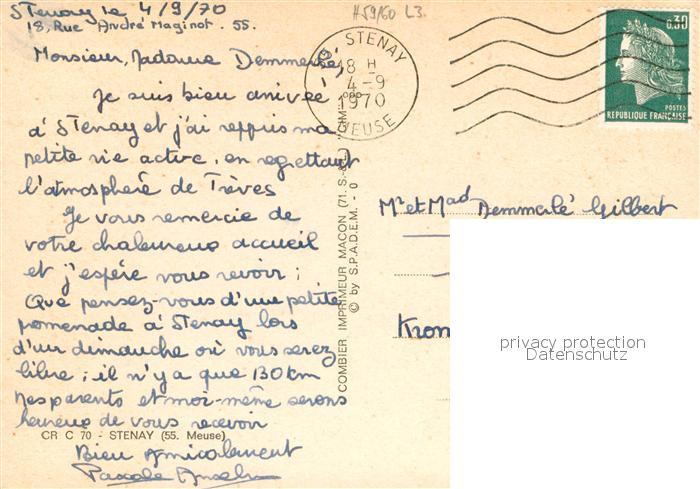 Stenay le 4/9/70
18, Rue André Maginot. 55.
H59/60 L3.
Monsieur, Madame Demmerlé,
Je suis bien arrivée
à Stenay et j'ai repris ma
petite vie active, en regrettant
l'atmosphère de Trèves
Je vous remercie de
votre chaleureux accueil
et j'espère vous revoir ;
Que pensez-vous d'une petite
promenade à Stenay lors
d'un dimanche où vous serez
libre ; il n'y a que 130 km
mes parents et moi-même serons
heureux de vous recevoir
CR C 70 - STENAY (55. Meuse)
Bien Amicalement
Pascale
COMBIER IMPRIMEUR MACON (71. S.-&-L.) "CIM"
© by S.P.A.D.E.M. - 0
STENAY
18 H
4-9
1970
MEUSE
0,30
POSTES
REPUBLIQUE FRANÇAISE
Mr et Mad Demmerlé Gilbert
Kron
privacy protection
Datenschutz